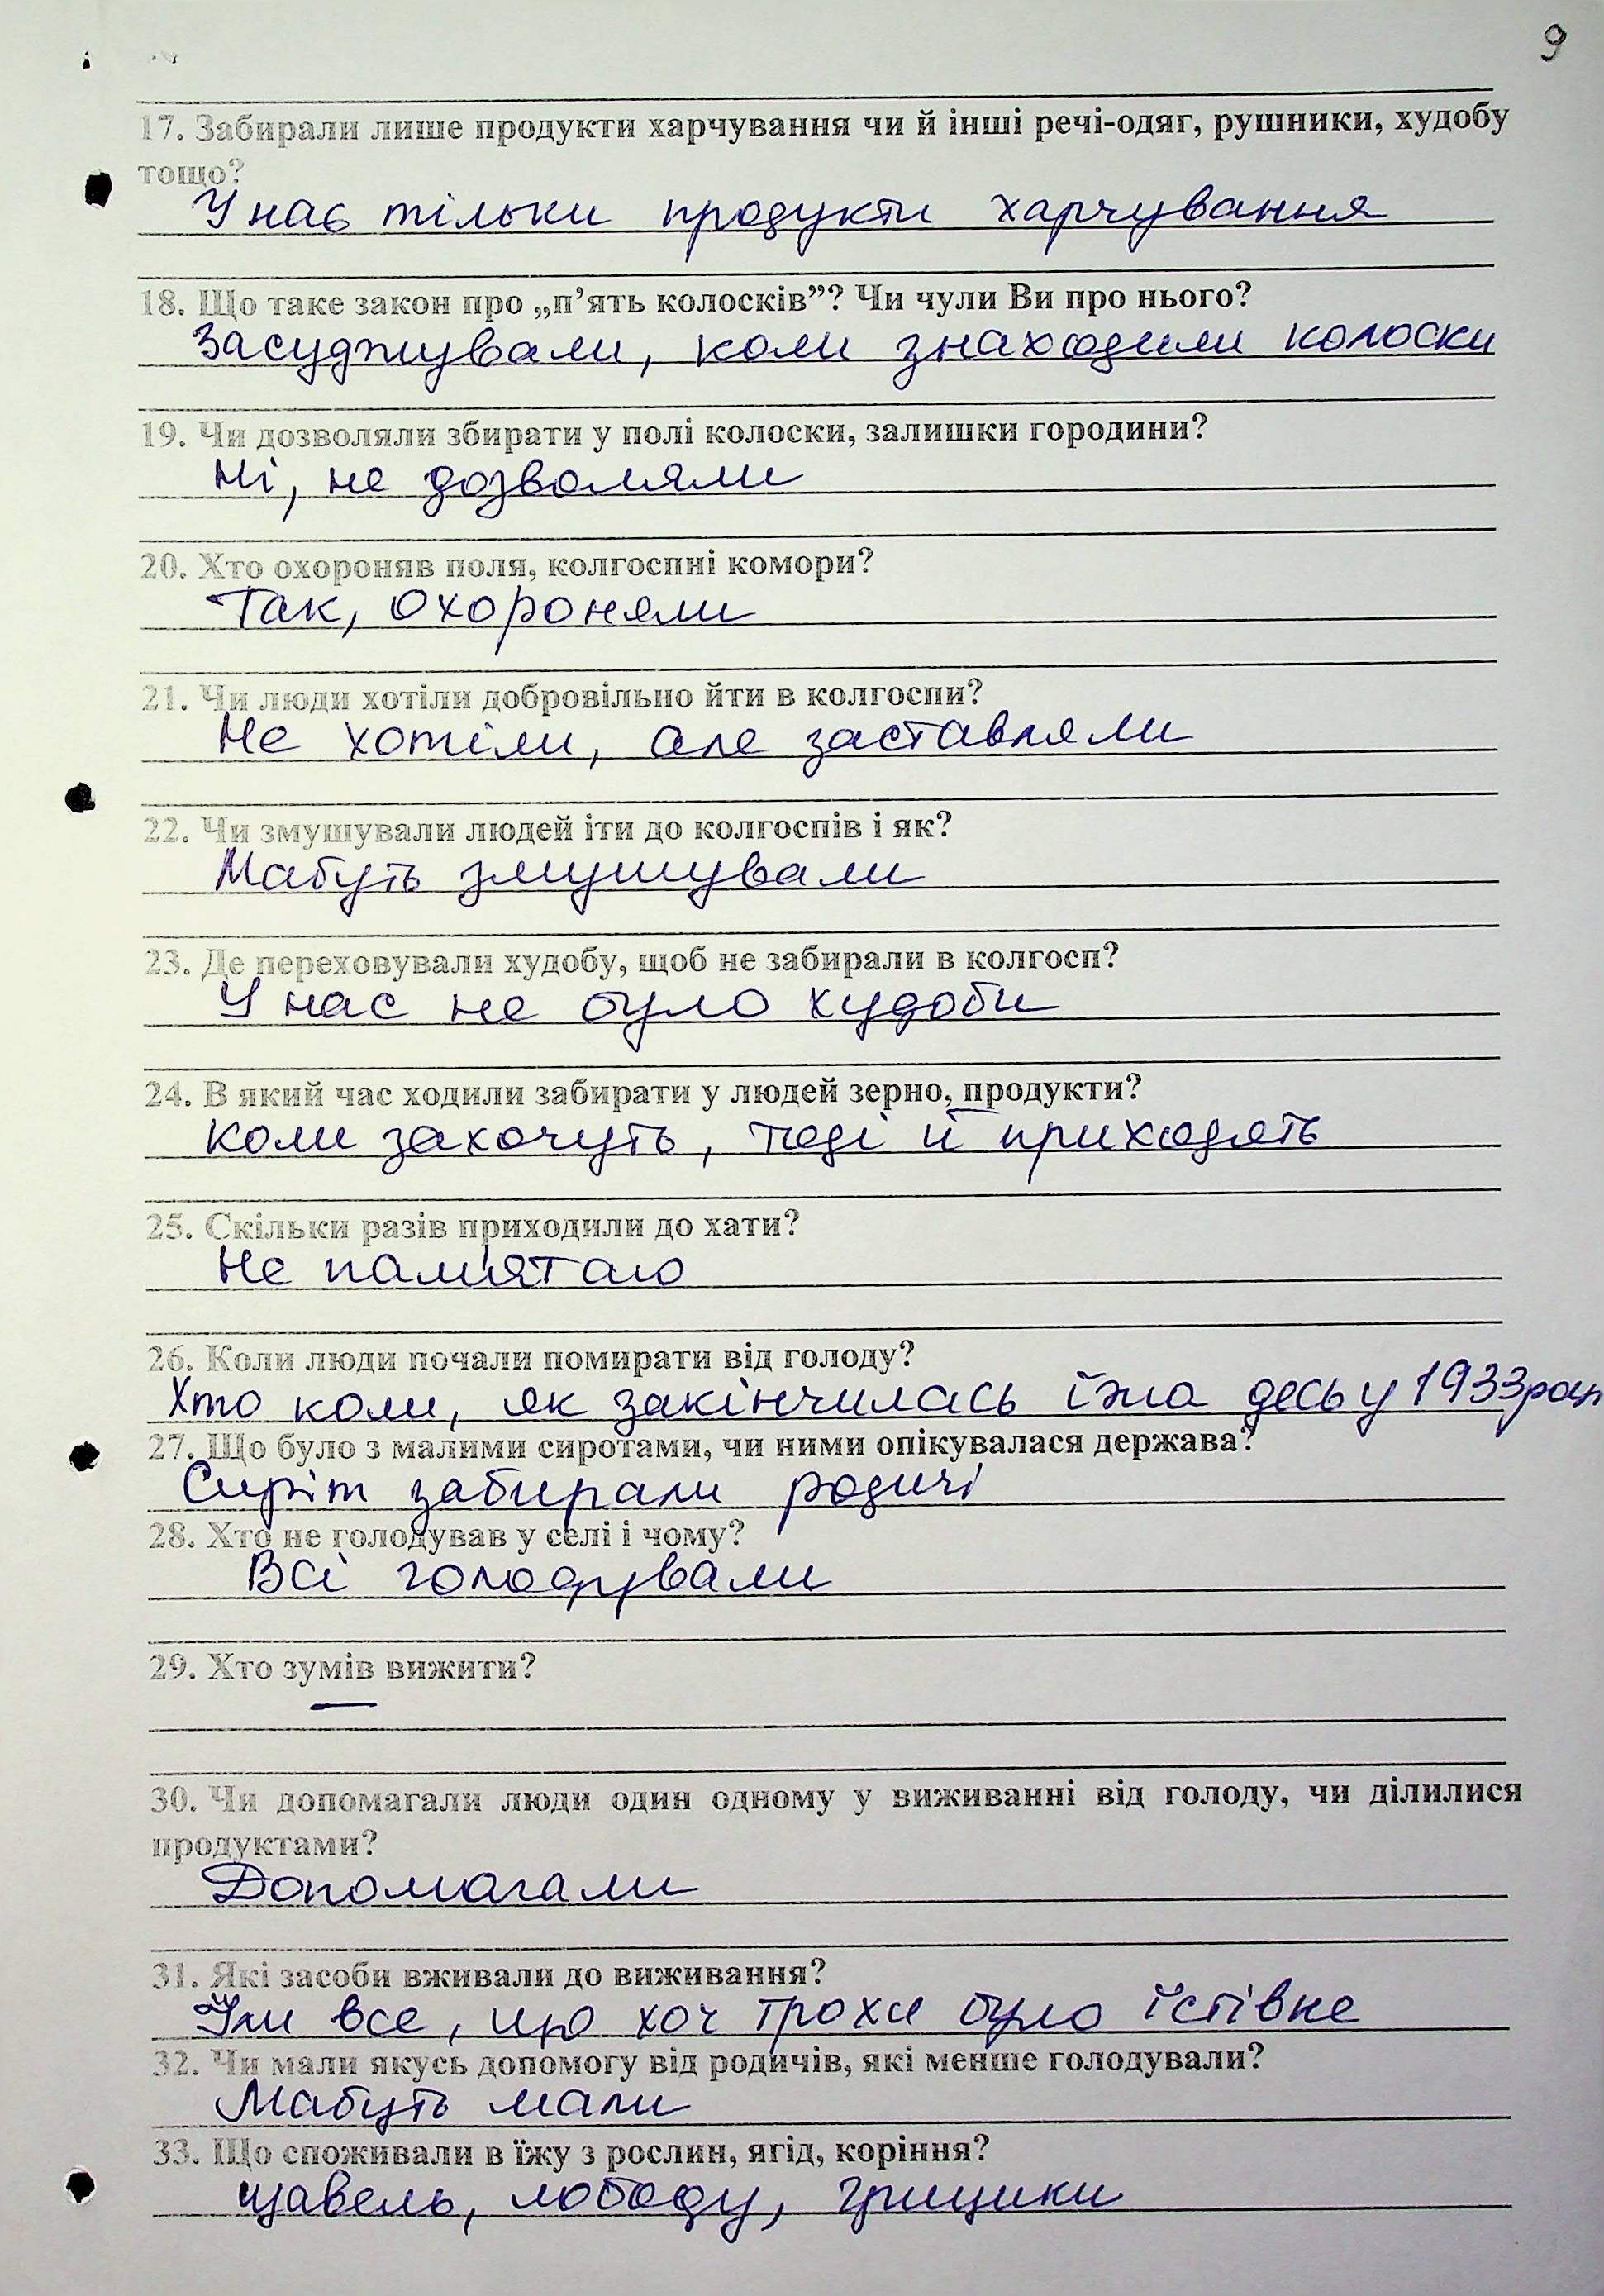 9
17. Забирали лише продукти харчування чи й інші речі-одяг, рушники, худобу
тощо?
У нас тільки продукти харчування
18. Що таке закон про „п’ять колосків”? Чи чули Ви про нього?
Засуджували, коли знаходили колоски
19. Чи дозволяли збирати у полі колоски, залишки городини?
Ні, не дозволяли
20. Хто охороняв поля, колгоспні комори?
Так, охороняли
21. Чи люди хотіли добровільно йти в колгоспи?
Не хотіли, але заставляли
22. Чи змушували людей іти до колгоспів і як?
Мабуть змушували
23. Де переховували худобу, щоб не забирали в колгосп?
У нас не було худоби
24. В який час ходили забирати у людей зерно, продукти?
Коли захочуть, тоді й приходять
25. Скільки разів приходили до хати?
Не пам'ятаю
26. Коли люди почали помирати від голоду?
Хто коли, як закінчилась їжа десь у 1933 році
27. Що було з малими сиротами, чи ними опікувалася держава?
Сиріт забирали родичі
28. Хто не голодував у селі і чому?
Всі голодували
29. Хто зумів вижити?
—
30. Чи допомагали люди один одному у виживанні від голоду, чи ділилися
продуктами?
Допомагали
31. Які засоби вживали до виживання?
Їли все, що хоч трохи було їстівне
32. Чи мали якусь допомогу від родичів, які менше голодували?
Мабуть мали
33. Що споживали в їжу з рослин, ягід, коріння?
щавель, лободу, грицики